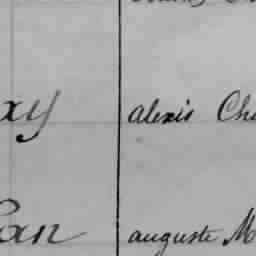 xy alexis Ch
an auguste M